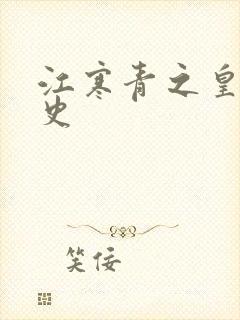 江寒青之皇
史
笑佞